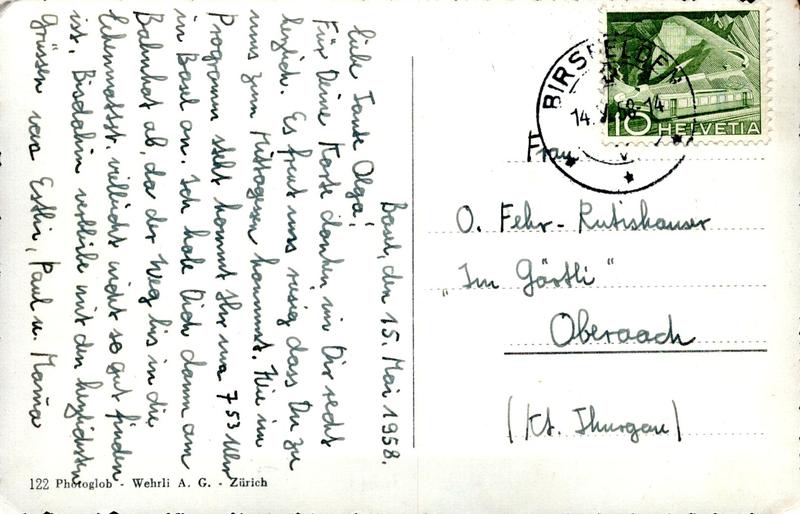 Basel, den 15. Mai 1958.
Liebe Tante Olga!
Für Deine Karte danken wir Dir recht
herzlich. Es freut uns riesig dass Du zu
uns zum Mittagessen kommst. Wie im
Programm steht kommt Ihr um 7 53 Uhr
in Basel an. Ich hole Dich dann am
Bahnhof ab, da der Weg bis in die
Lehenmatt. vielleicht nicht so gut finden
ist. Bis dahin verbleibe mit den herzlichsten
Grüssen von Esthi, Paul u. Mama
122 Photoglob - Wehrli A. G. - Zürich
BIRSFELDEN
14. V. 58-14
10 HELVETIA
Frau
O. Fehr-Rutishauser
„Im Gärtli“
Oberaach
(Kt. Thurgau)